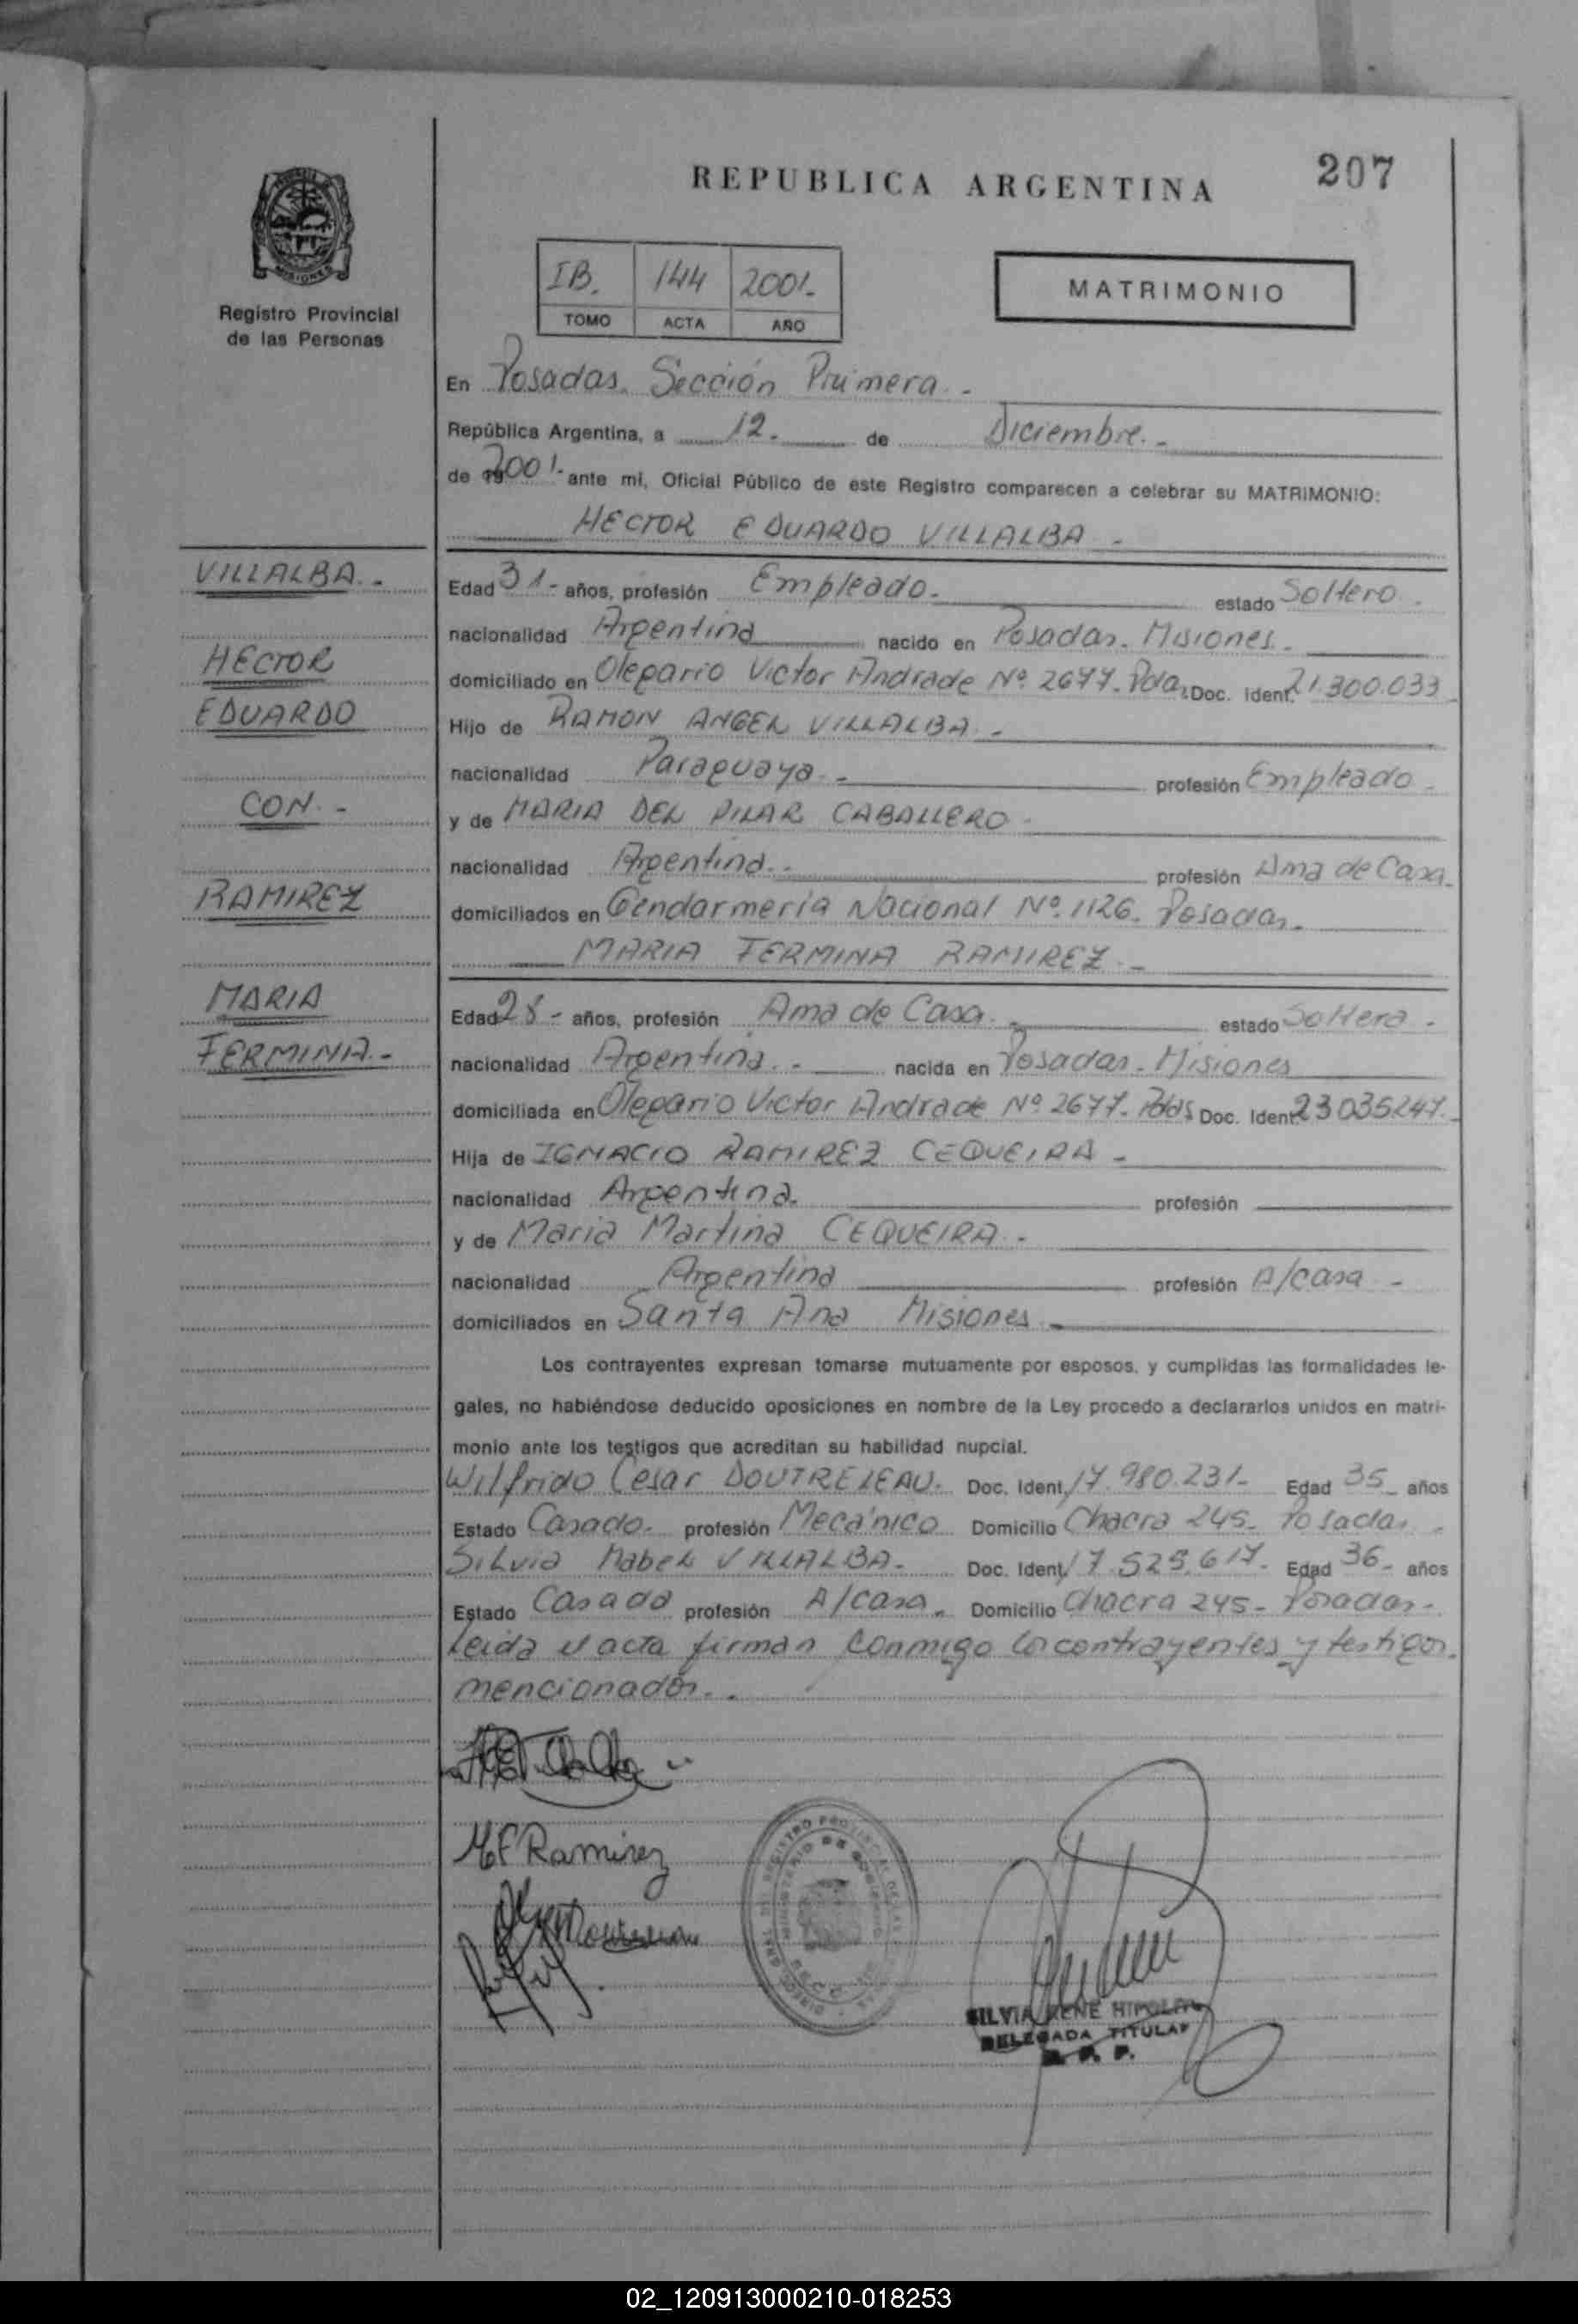 REPUBLICA ARGENTINA
207
MISIONES
Registro Provincial
de las Personas
IB. 144 2001.-
TOMO ACTA AÑO
MATRIMONIO
En Posadas. Sección Primera.-
República Argentina, a 12.- de Diciembre.-
de 2001.- ante mí, Oficial Público de este Registro comparecen a celebrar su MATRIMONIO:
HECTOR EDUARDO VILLALBA.-
VILLALBA.-
HECTOR
EDUARDO
CON.-
RAMIREZ
MARIA
FERMINA.-
Edad 31- años, profesión Empleado.- estado Soltero.
nacionalidad Argentina nacido en Posadas. Misiones.-
domiciliado en Olegario Victor Andrade Nº 2677. Pdas Doc. Ident. 21.300.033
Hijo de RAMON ANGEL VILLALBA.-
nacionalidad Paraguaya.- profesión Empleado.-
y de MARIA DEL PILAR CABALLERO.-
nacionalidad Argentina.- profesión Ama de Casa.
domiciliados en Gendarmeria Nacional Nº 1126. Posadas.
MARIA FERMINA RAMIREZ.-
Edad 28- años, profesión Ama de Casa.- estado Soltera.-
nacionalidad Argentina.- nacida en Posadas. Misiones
domiciliada en Olegario Victor Andrade Nº 2677. Pdas Doc. Ident. 23035247.
Hija de IGNACIO RAMIREZ CEQUEIRA.-
nacionalidad Argentina. profesión
y de Maria Martina CEQUEIRA.-
nacionalidad Argentina profesión A/casa.-
domiciliados en Santa Ana Misiones.-
Los contrayentes expresan tomarse mutuamente por esposos, y cumplidas las formalidades le-
gales, no habiéndose deducido oposiciones en nombre de la Ley procedo a declararlos unidos en matri-
monio ante los testigos que acreditan su habilidad nupcial.
Wilfrido Cesar DOUTRELEAU. Doc. Ident. 17.980.231- Edad 35- años
Estado Casado. profesión Mecánico Domicilio Chacra 245- Posadas.-
Silvia Mabel VILLALBA.- Doc. Ident. 17.525.617- Edad 36- años
Estado Casada profesión A/casa. Domicilio Chacra 245- Posadas.-
Leida el acta firman conmigo los contrayentes y testigos.
mencionados..
MF Ramirez
SILVIA RENE HIPOLITO
DELEGADA TITULAR
R. P. P.
02_120913000210-018253